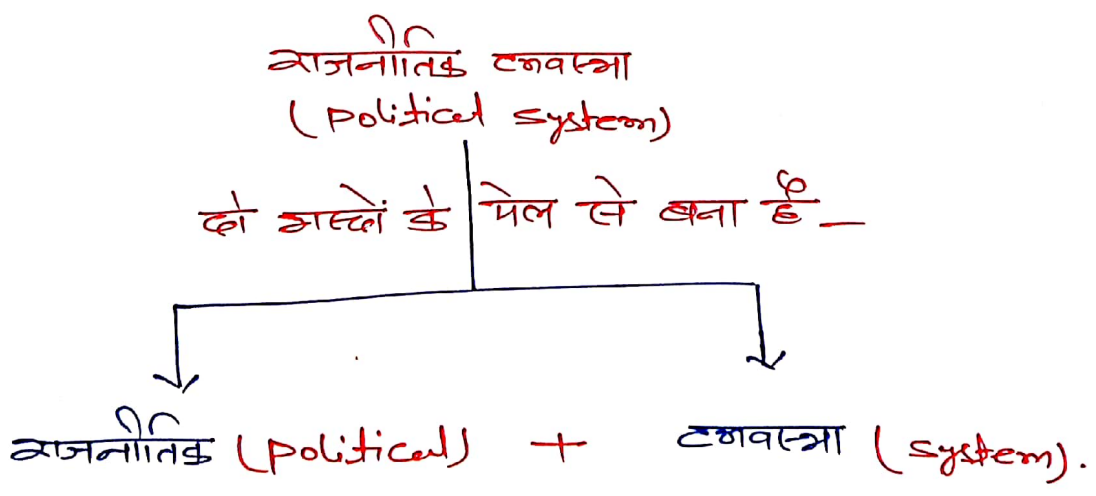 राजनीतिक व्यवस्था
(political system)
दो शब्दों के मेल से बना है –
राजनीतिक (political) + व्यवस्था (system).